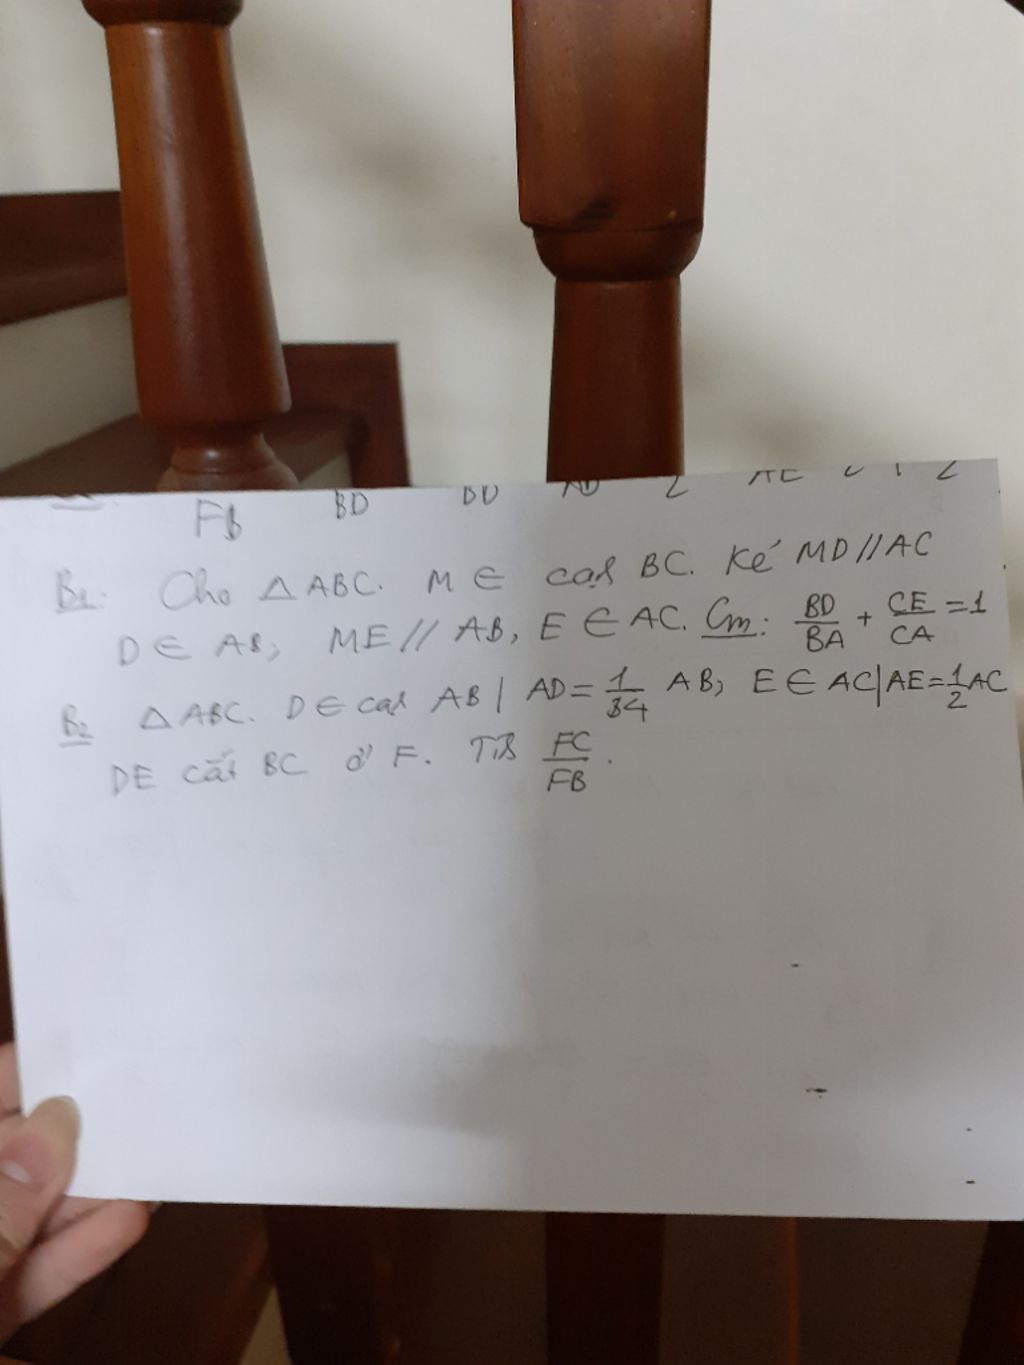 FB BD BD AD 2 AE 2
B1: Cho △ABC. M ∈ cạnh BC. Kẻ MD // AC
D ∈ AB; ME // AB, E ∈ AC. Cm: BD/BA + CE/CA = 1
B2 △ABC. D ∈ cạnh AB | AD = 1/34 AB; E ∈ AC | AE = 1/2 AC
DE cắt BC ở F. FC/FB.